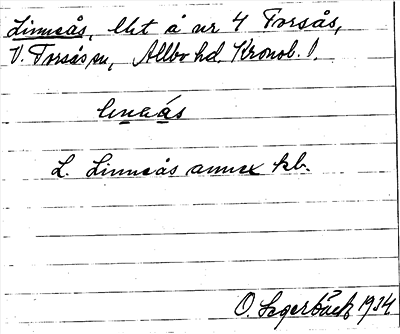 Linneås, lht å nr 4 Torsås,
V. Torsås sn, Allbo hd. Kronob. l.
lineás
L. Linneås annex kb.
O. Lagerbäck 1934